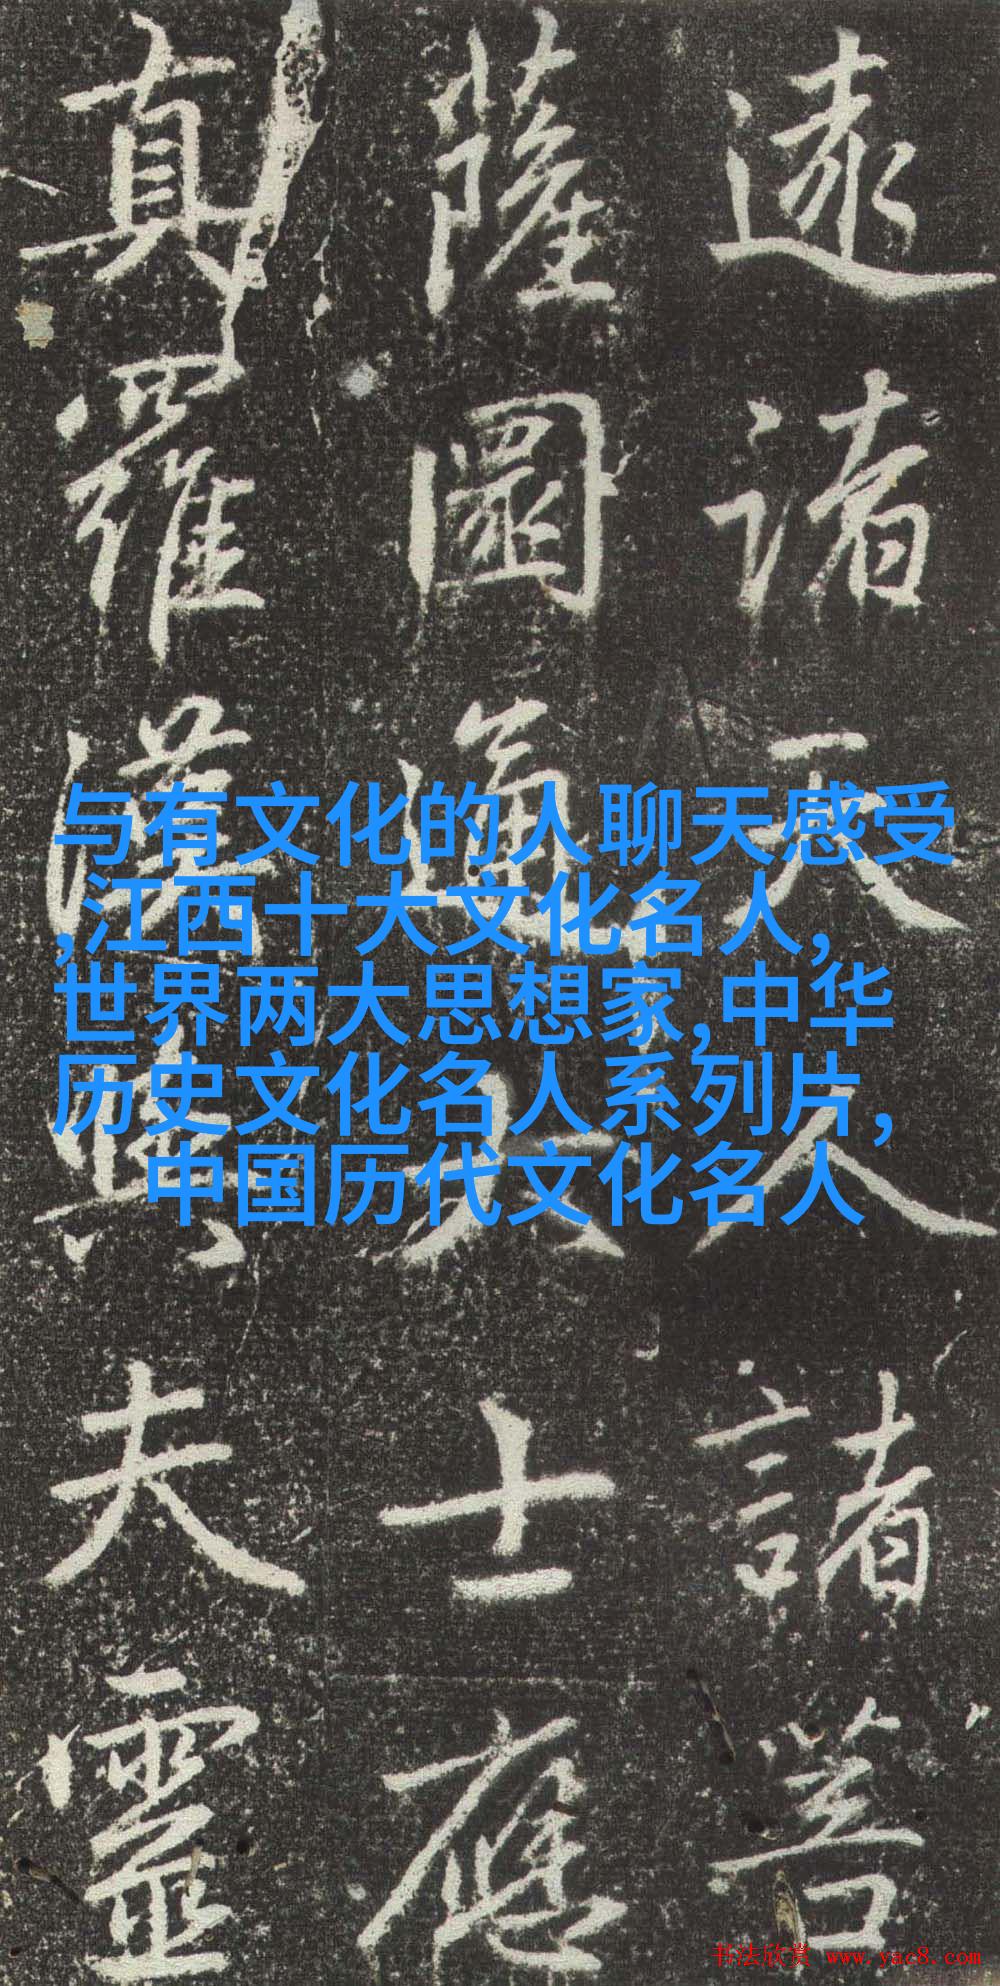 遠諸天人諸菩
薩圓通大士應
真羅漢與夫靈
与有文化的人聊天感受
,江西十大文化名人,
世界两大思想家,中华
历史文化名人系列片,
中国历代文化名人
书法欣赏 www.yac8.com